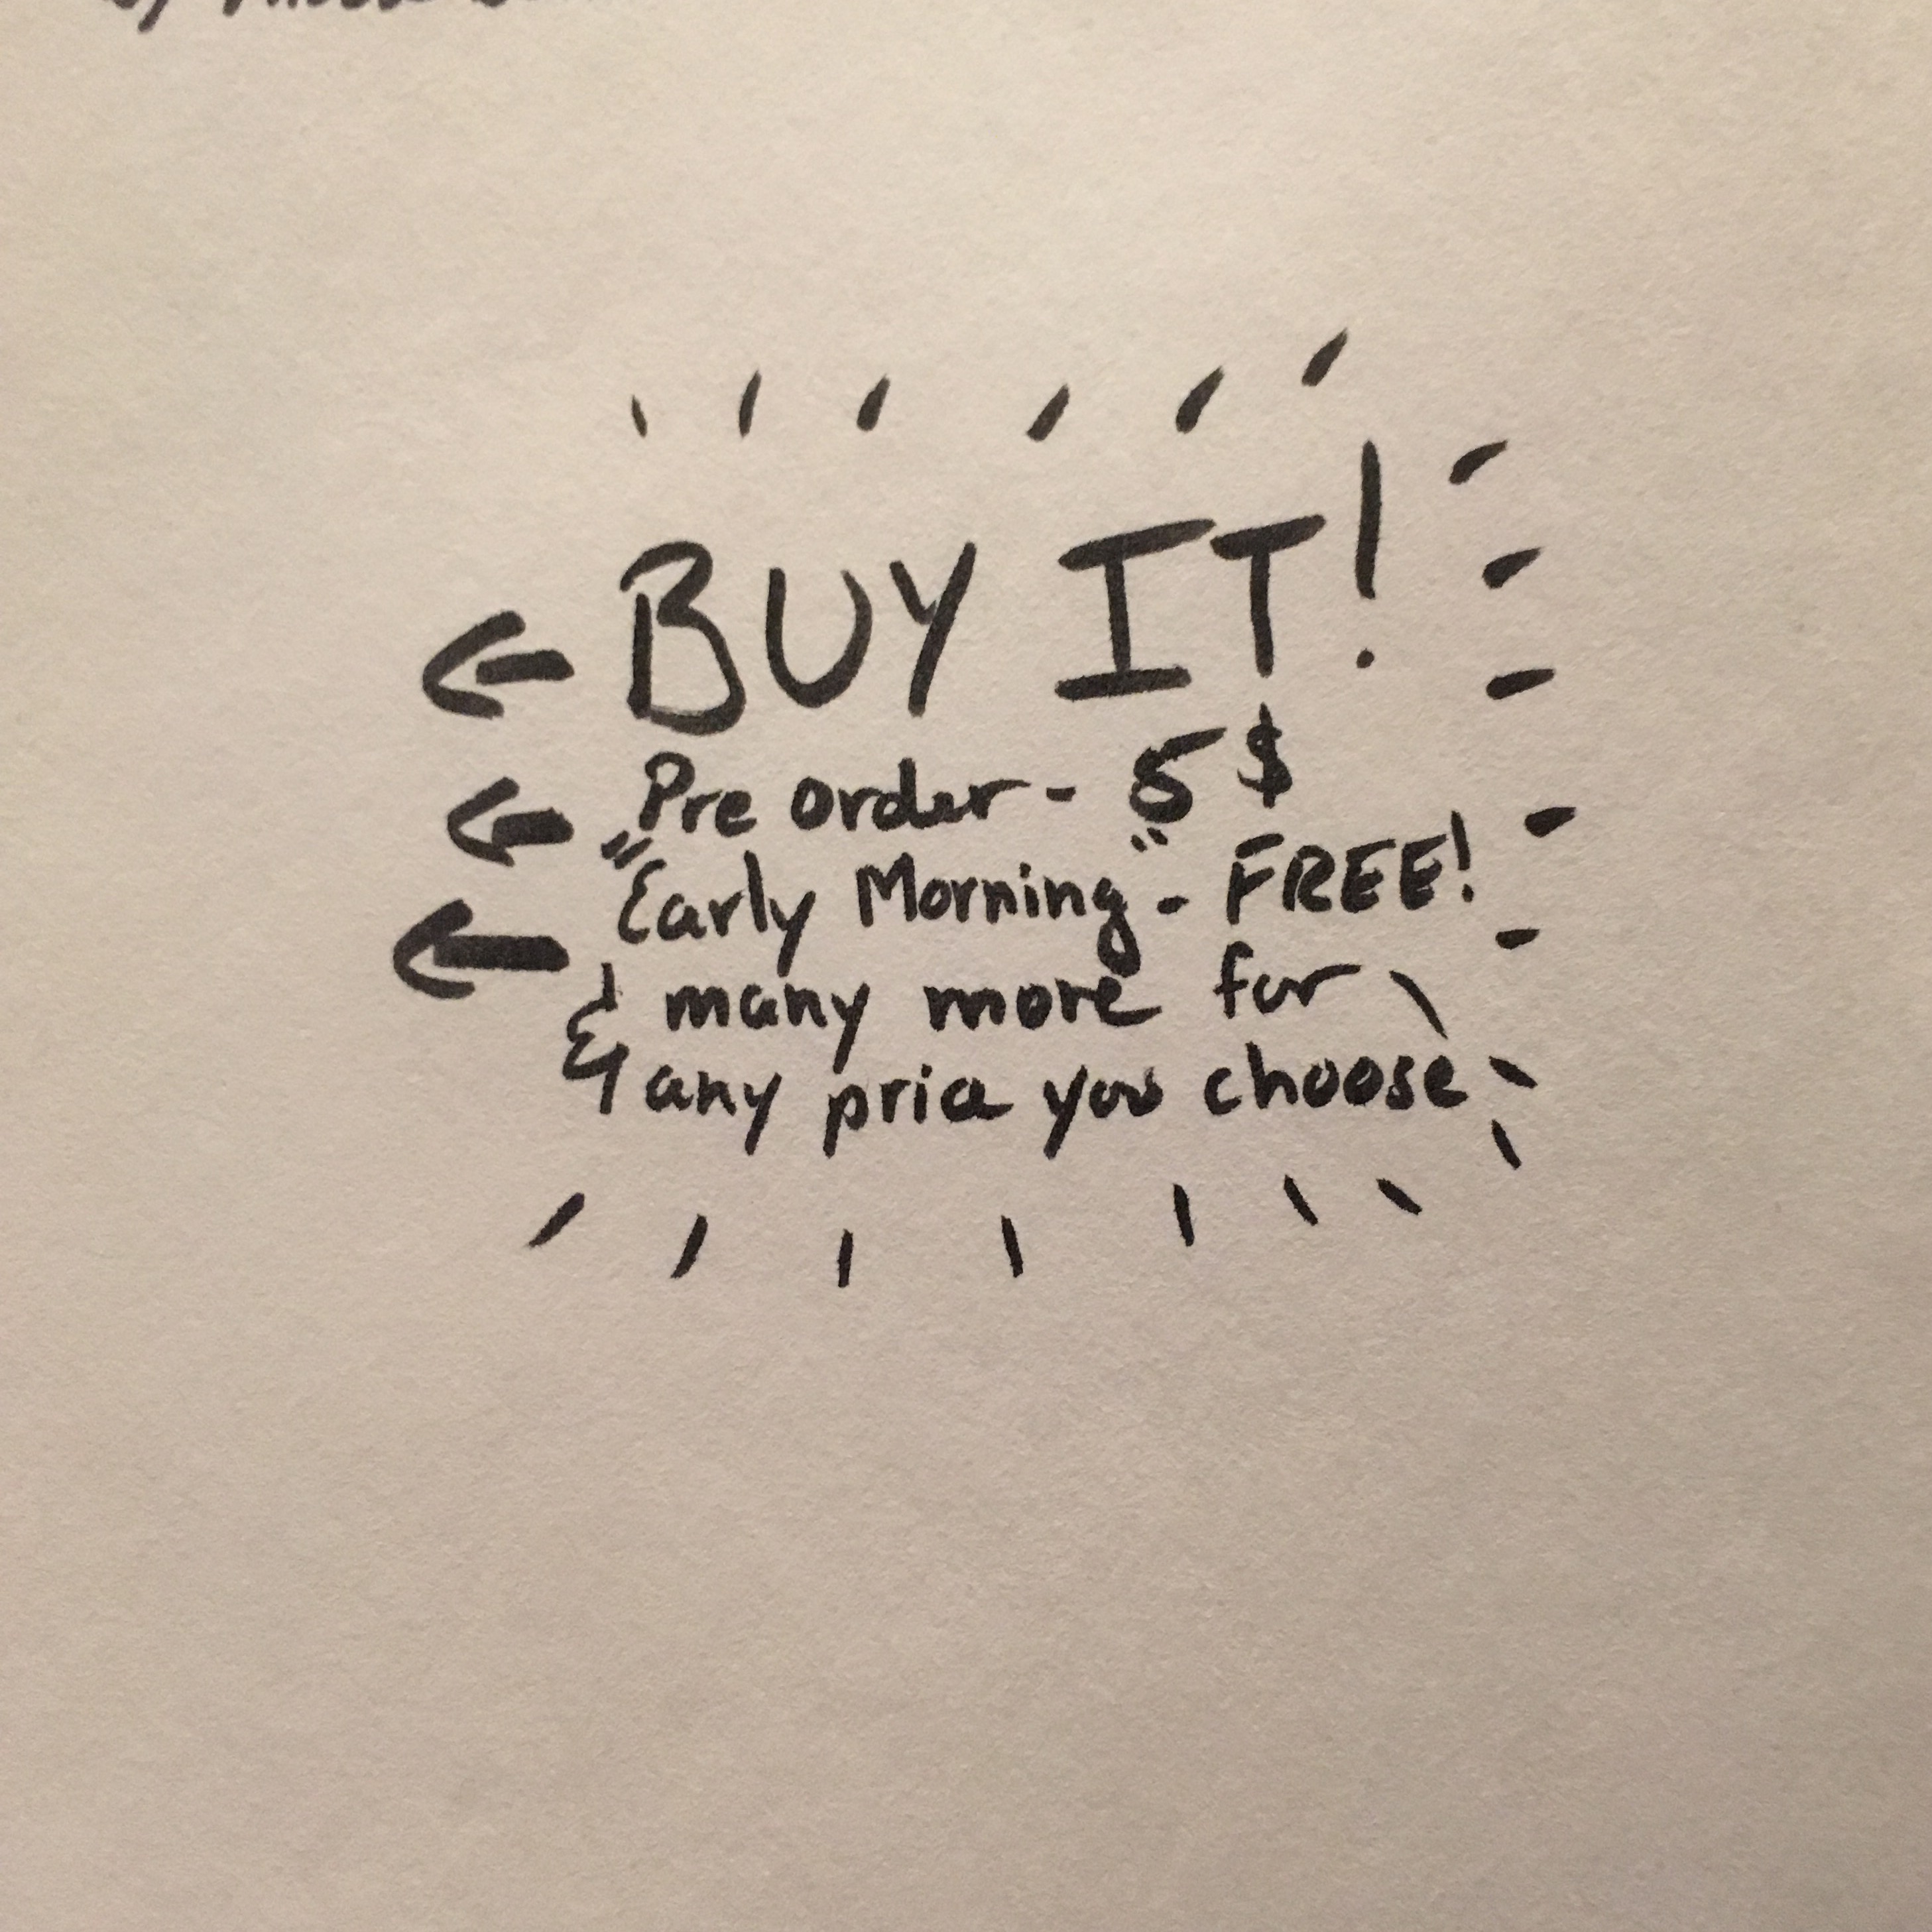 by
BUY IT!
Pre order - 5$
"Early Morning" - FREE!
& many more for
any price you choose